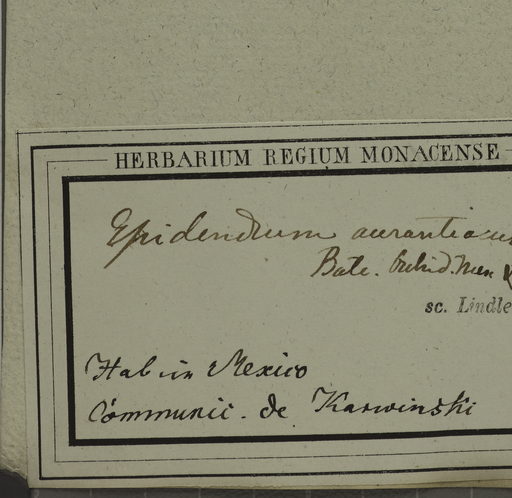 HERBARIUM REGIUM MONACENSE
Epidendrum
Bate. Orchid. Mex
sc. Lindle
Hab in Mexico
Communic. de Karwinski